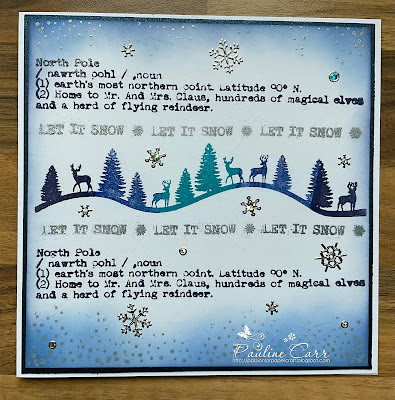 North Pole
/ nawrth pohl / ,noun
(1) earth's most northern point. Latitude 90° N.
(2) Home to Mr. And Mrs. Claus, hundreds of magical elves
and a herd of flying reindeer.
LET IT SNOW ❄ LET IT SNOW ❄ LET IT SNOW ❄
LET IT SNOW ❄ LET IT SNOW ❄ LET IT SNOW ❄
North Pole
/ nawrth pohl / ,noun
(1) earth's most northern point. Latitude 90° N.
(2) Home to Mr. And Mrs. Claus, hundreds of magical elves
and a herd of flying reindeer.
Pauline Carr